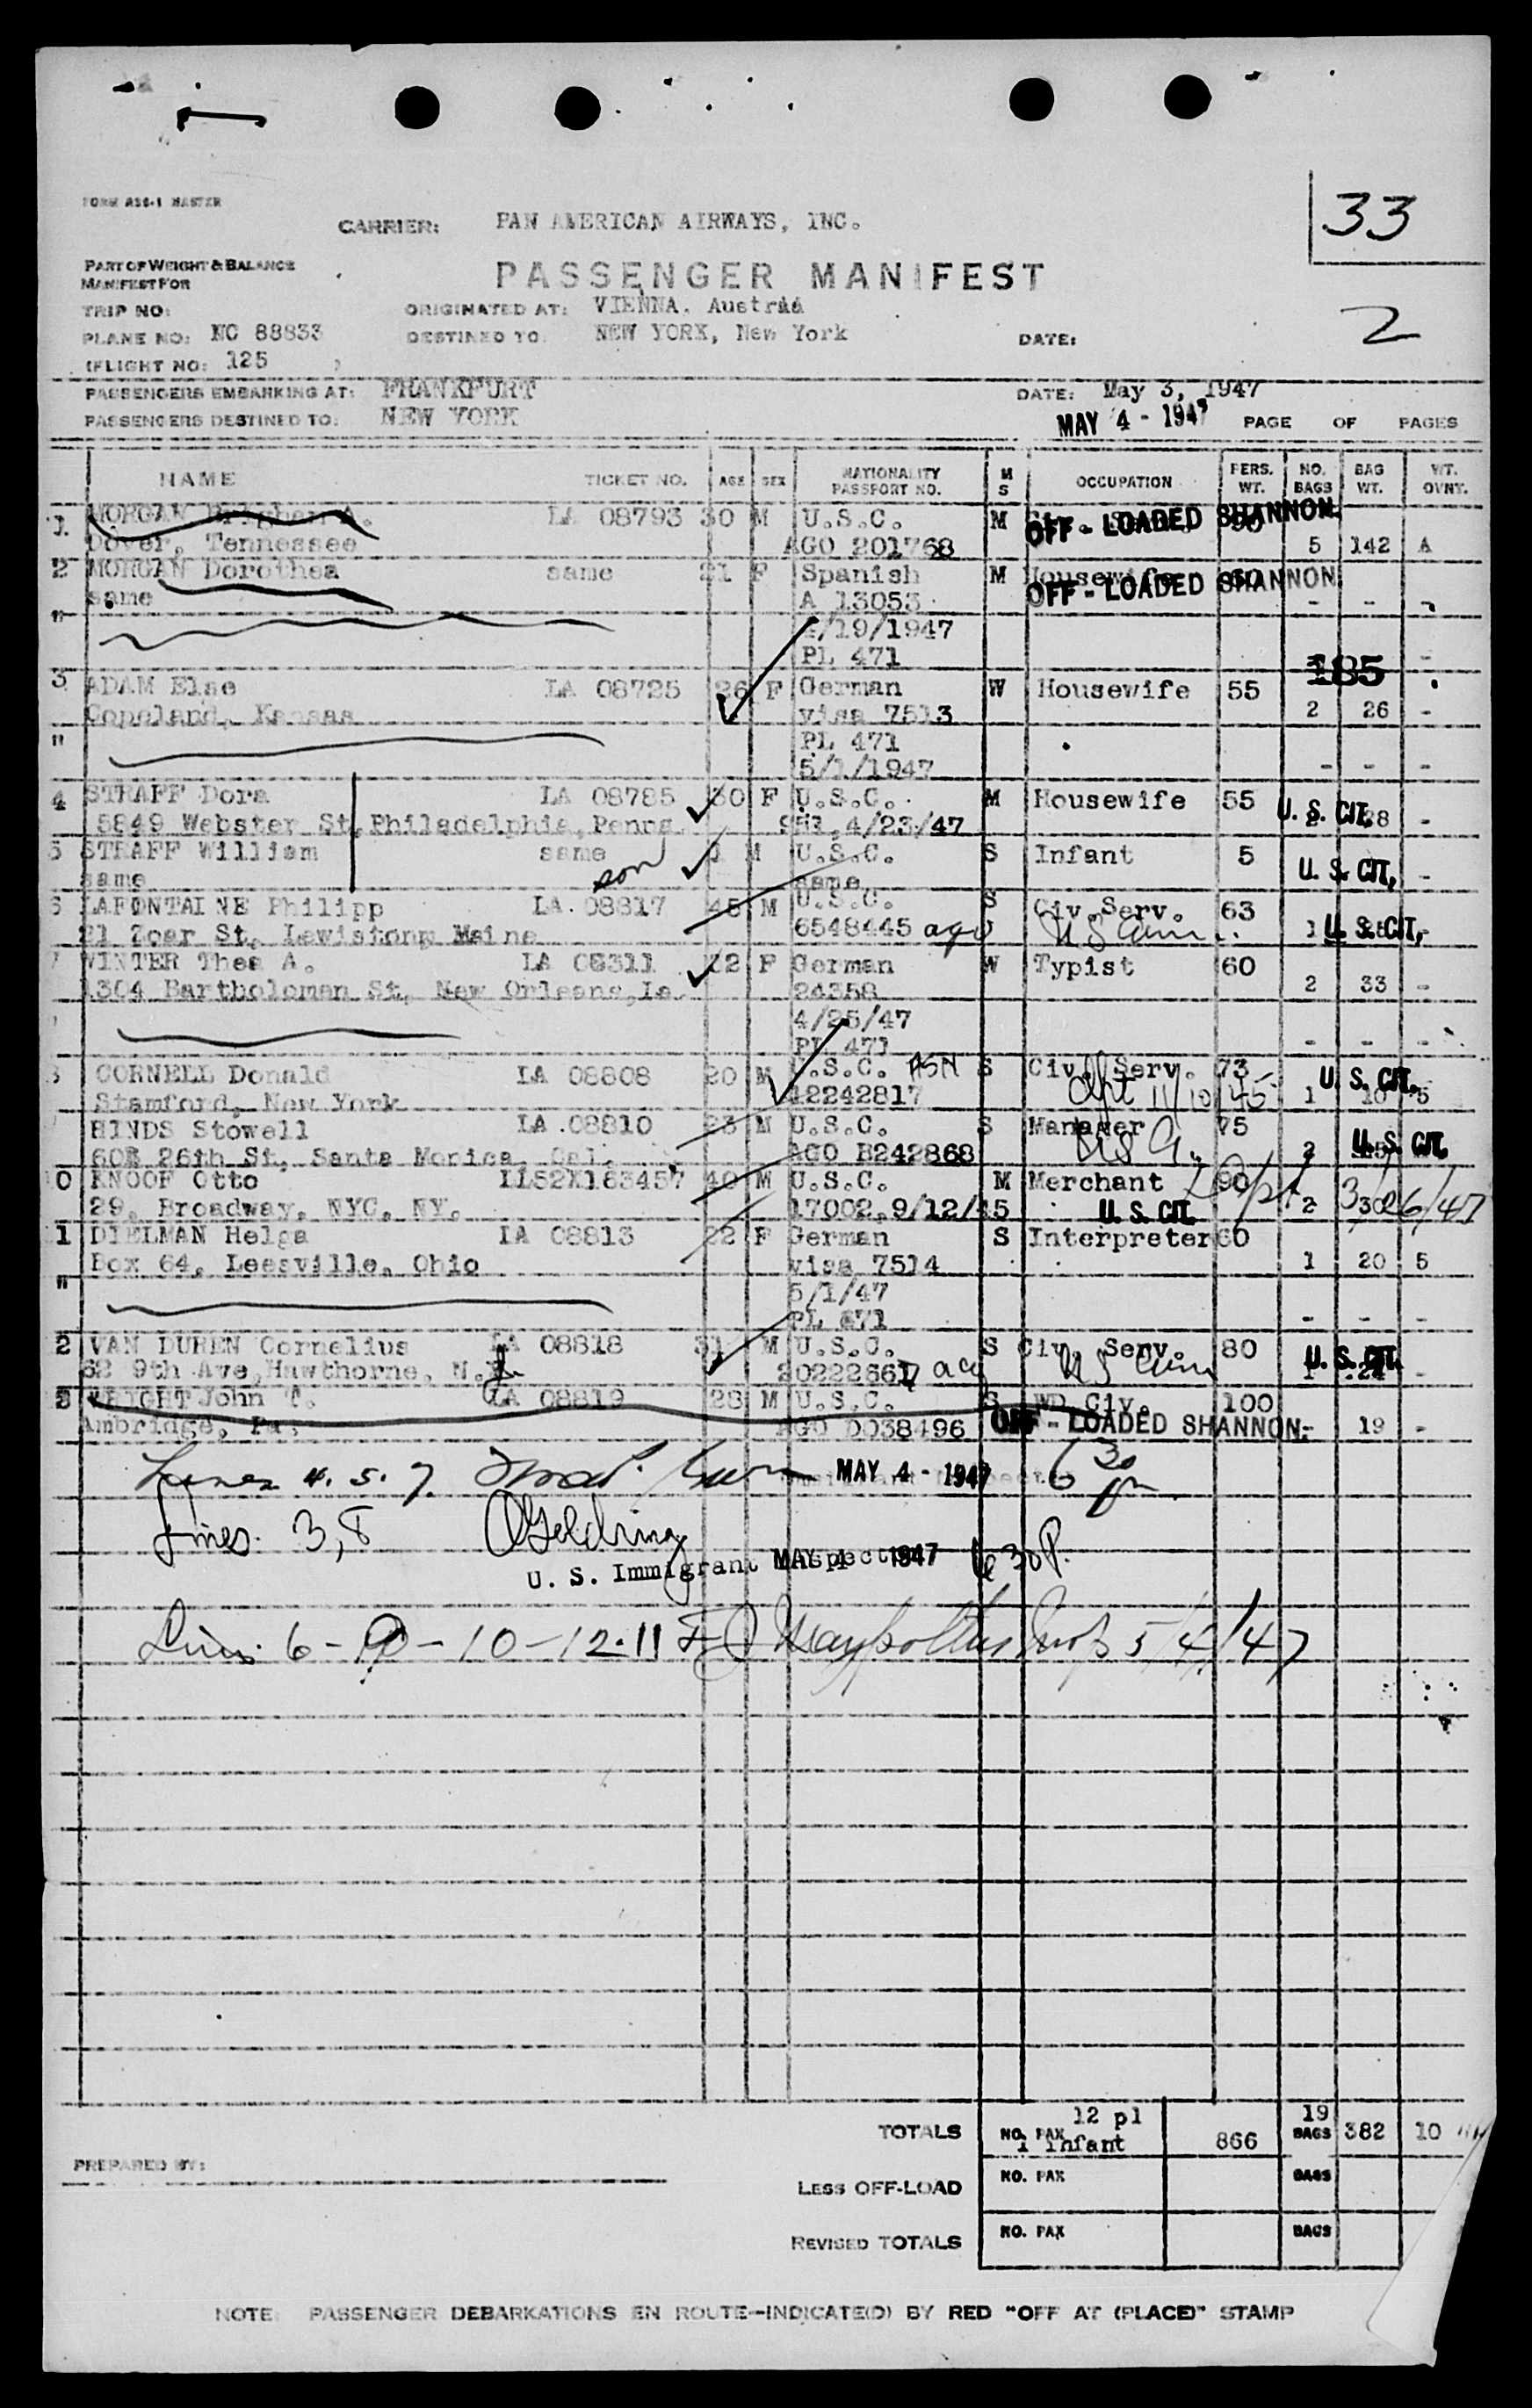 33
FORM ASG-1 MASTER
CARRIER: PAN AMERICAN AIRWAYS, INC.
PART OF WEIGHT & BALANCE
MANIFEST FOR
PASSENGER MANIFEST
TRIP NO:
ORIGINATED AT: VIENNA. Austria
2
PLANE NO: NC 88833
DESTINED TO. NEW YORK, New York
DATE:
(FLIGHT NO: 125 )
PASSENGERS EMBARKING AT: FRANKFURT
DATE: May 3, 1947
PASSENGERS DESTINED TO: NEW YORK
MAY 4 - 1947 PAGE OF PAGES
NAME TICKET NO. AGE SEX NATIONALITY PASSPORT NO. M S OCCUPATION PERS. WT. NO. BAGS BAG WT. WT. OVNT.
1. MORGAN A. LA 08793 30 M U.S.C. M OFF - LOADED SHANNON.
Dover, Tennessee AGO 201768 5 142 A
2 MORGAN Dorothea same 21 F Spanish M Housewife OFF - LOADED SHANNON
same A 13053 - -
" 4/19/1947
PL 471
185
3 ADAM Else LA 08725 26 F German W Housewife 55
Copeland, Kansas visa 7513 2 26 -
" PL 471
5/1/1947 - - -
4 STRAFF Dora LA 08785 30 F U.S.C. M Housewife 55 U. S. CIT.
5849 Webster St, Philadelphia, Penna. 4/23/47 -
5 STRAFF William same 1 M U.S.C. S Infant 5 U. S. CIT.
same son same -
6 LAFONTAINE Philipp LA. 08817 45 M U.S.C. S Civ. Serv. 63
21 Zoar St, Lewistonn Maine 6548445 ago 1 U. S. CIT. -
7 WINTER Thea A. LA 08311 32 F German W Typist 60
1304 Bartholoman St, New Orleans, La. 24358 2 33 -
4/25/47
PL 471 - - -
8 CORNELL Donald LA 08808 20 M U.S.C. ASN S Civ. Serv. 73 U. S. CIT.
Stamford, New York 42242817 dpt 11/10/45 1 10 5
HINDS Stowell LA .08810 23 M U.S.C. S Manager 75
602 26th St, Santa Monica, Cal. AGO B242868 2 U. S. CIT.
0 KNOOF Otto LL52X183457 40 M U.S.C. M Merchant 90 Dpt 3/26/47
29, Broadway, NYC, NY. 17002, 9/12/45 U. S. CIT. 2 30
1 DIELMAN Helga LA 08813 22 F German S Interpreter 60
Box 64, Leesville, Ohio visa 7514 1 20 5
" 5/1/47
PL 471 - - -
2 VAN DUREN Cornelius LA 08818 31 M U.S.C. S Civ. Serv. 80 U. S. CIT.
62 9th Ave, Hawthorne, N.J. 20222661 ago 1 24 -
3 WRIGHT John LA 08819 28 M U.S.C. S WD Civ. 100
Ambridge, Pa, AGO D038496 OFF - LOADED SHANNON. - 19 -
Lines 4. 5. 7. MAY 4 - 1947 6 30 pm
Lines. 3, 8 Geldring
U. S. Immigrant Inspector MAY 4 1947 6 30 P.
Lines 6 - 9 - 10 - 12 - 11 5/4/47
TOTALS NO. PAX 12 pl 1 Infant 866 19 BAGS 382 10
PREPARED BY:
LESS OFF-LOAD NO. PAX BAGS
REVISED TOTALS NO. PAX BAGS
NOTE: PASSENGER DEBARKATIONS EN ROUTE—INDICATE(D) BY RED "OFF AT (PLACE)" STAMP